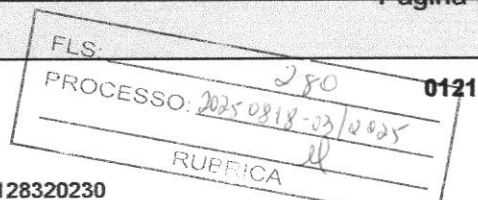 Página
FLS: 280
0121
PROCESSO: 20250818-03/2025
RUBRICA
128320230